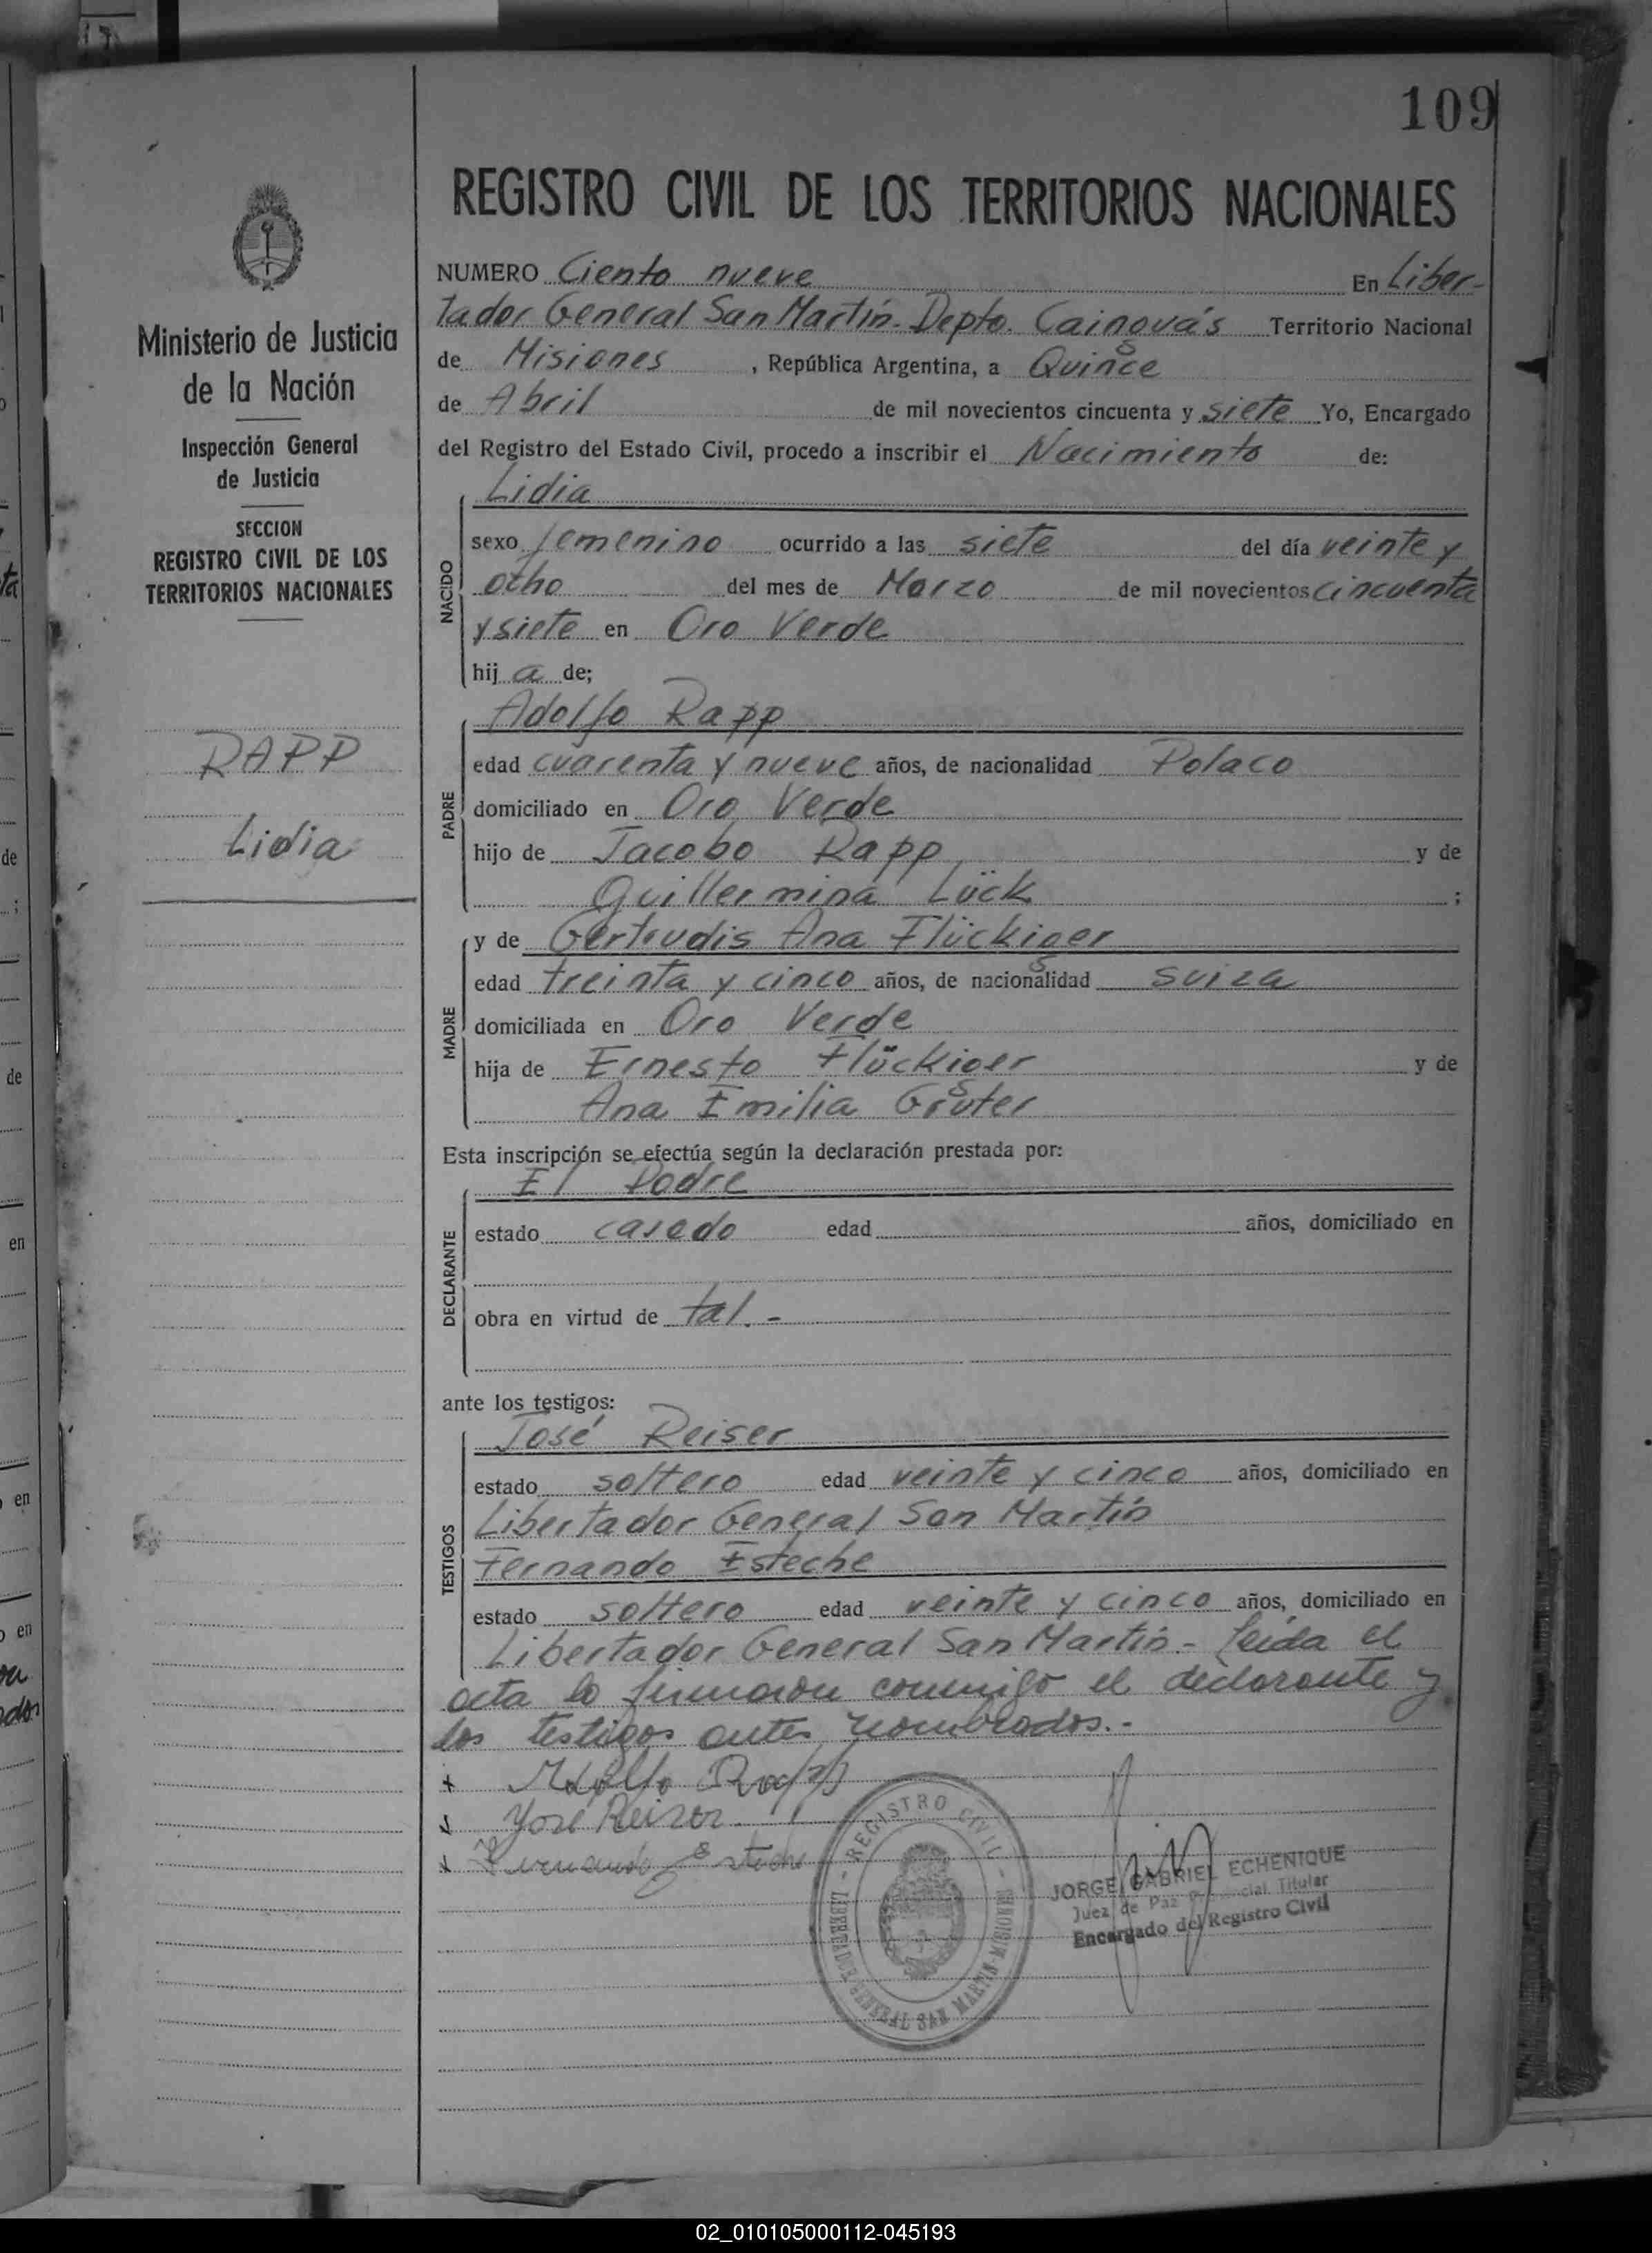 109
REGISTRO CIVIL DE LOS TERRITORIOS NACIONALES
Ministerio de Justicia
de la Nación
Inspección General
de Justicia
SECCION
REGISTRO CIVIL DE LOS
TERRITORIOS NACIONALES
RAPP
Lidia
NUMERO Ciento nueve En Liber-
tador General San Martín. Depto. Cainguás Territorio Nacional
de Misiones, República Argentina, a Quince
de Abril de mil novecientos cincuenta y siete Yo, Encargado
del Registro del Estado Civil, procedo a inscribir el Nacimiento de:
NACIDO
Lidia
sexo femenino ocurrido a las siete del día veinte y
ocho del mes de Marzo de mil novecientos cincuenta
y siete en Oro Verde
hij a de;
PADRE
Adolfo Rapp
edad cuarenta y nueve años, de nacionalidad Polaco
domiciliado en Oro Verde
hijo de Jacobo Rapp y de
Guillermina Lück ;
MADRE
y de Gertrudis Ana Flückiger
edad treinta y cinco años, de nacionalidad suiza
domiciliada en Oro Verde
hija de Ernesto Flückiger y de
Ana Emilia Gruter
Esta inscripción se efectúa según la declaración prestada por:
DECLARANTE
El Padre
estado casado edad años, domiciliado en
obra en virtud de tal. -
ante los testigos:
TESTIGOS
José Reiser
estado soltero edad veinte y cinco años, domiciliado en
Libertador General San Martín
Fernando Esteche
estado soltero edad veinte y cinco años, domiciliado en
Libertador General San Martín.- Leida el
acta la firmaron conmigo el declarante y
los testigos antes nombrados.-
Adolfo Rapp
José Reiser
Fernando Esteche
REGISTRO CIVIL
LIBERTADOR GENERAL SAN MARTIN MISIONES
JORGE GABRIEL ECHENIQUE
Juez de Paz Provincial Titular
Encargado del Registro Civil
02_010105000112-045193